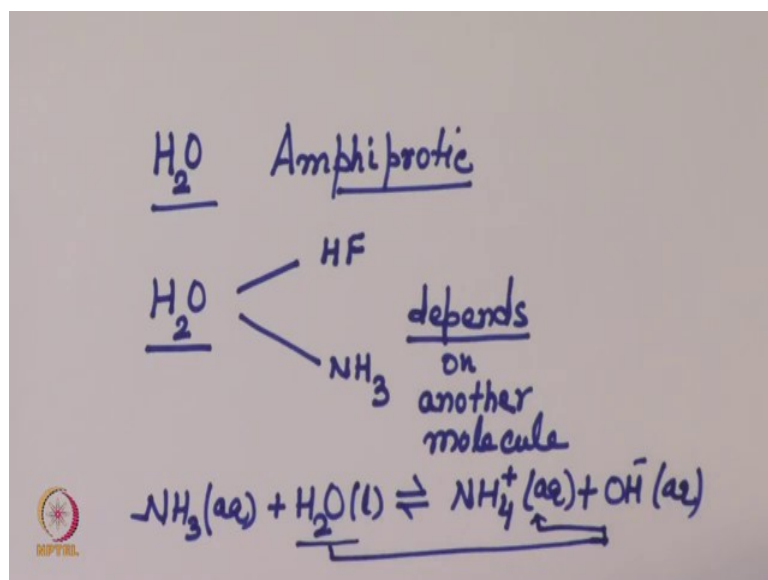 H₂O Amphiprotic
HF
H₂O
NH₃
depends
on
another
molecule
NH₃(aq) + H₂O(l) ⇌ NH₄⁺(aq) + OH⁻(aq)
NPTEL